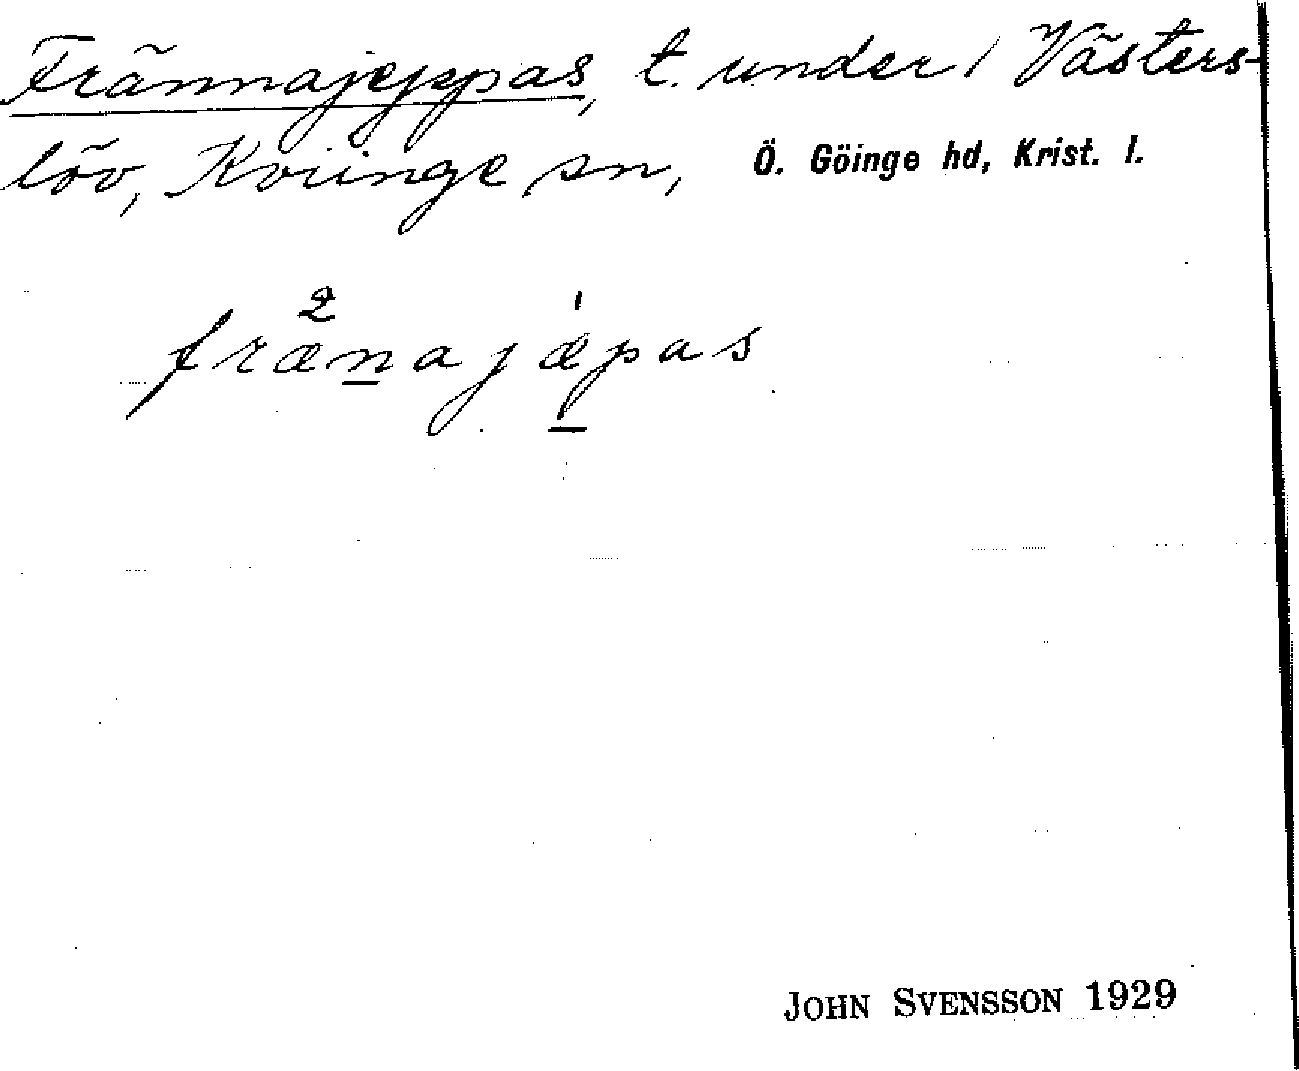 Frännajeppas, t. under 1 Västers-
löv, Kviinge sn, Ö. Göinge hd, Krist. l.
fræ²najæ̍pas
JOHN SVENSSON 1929